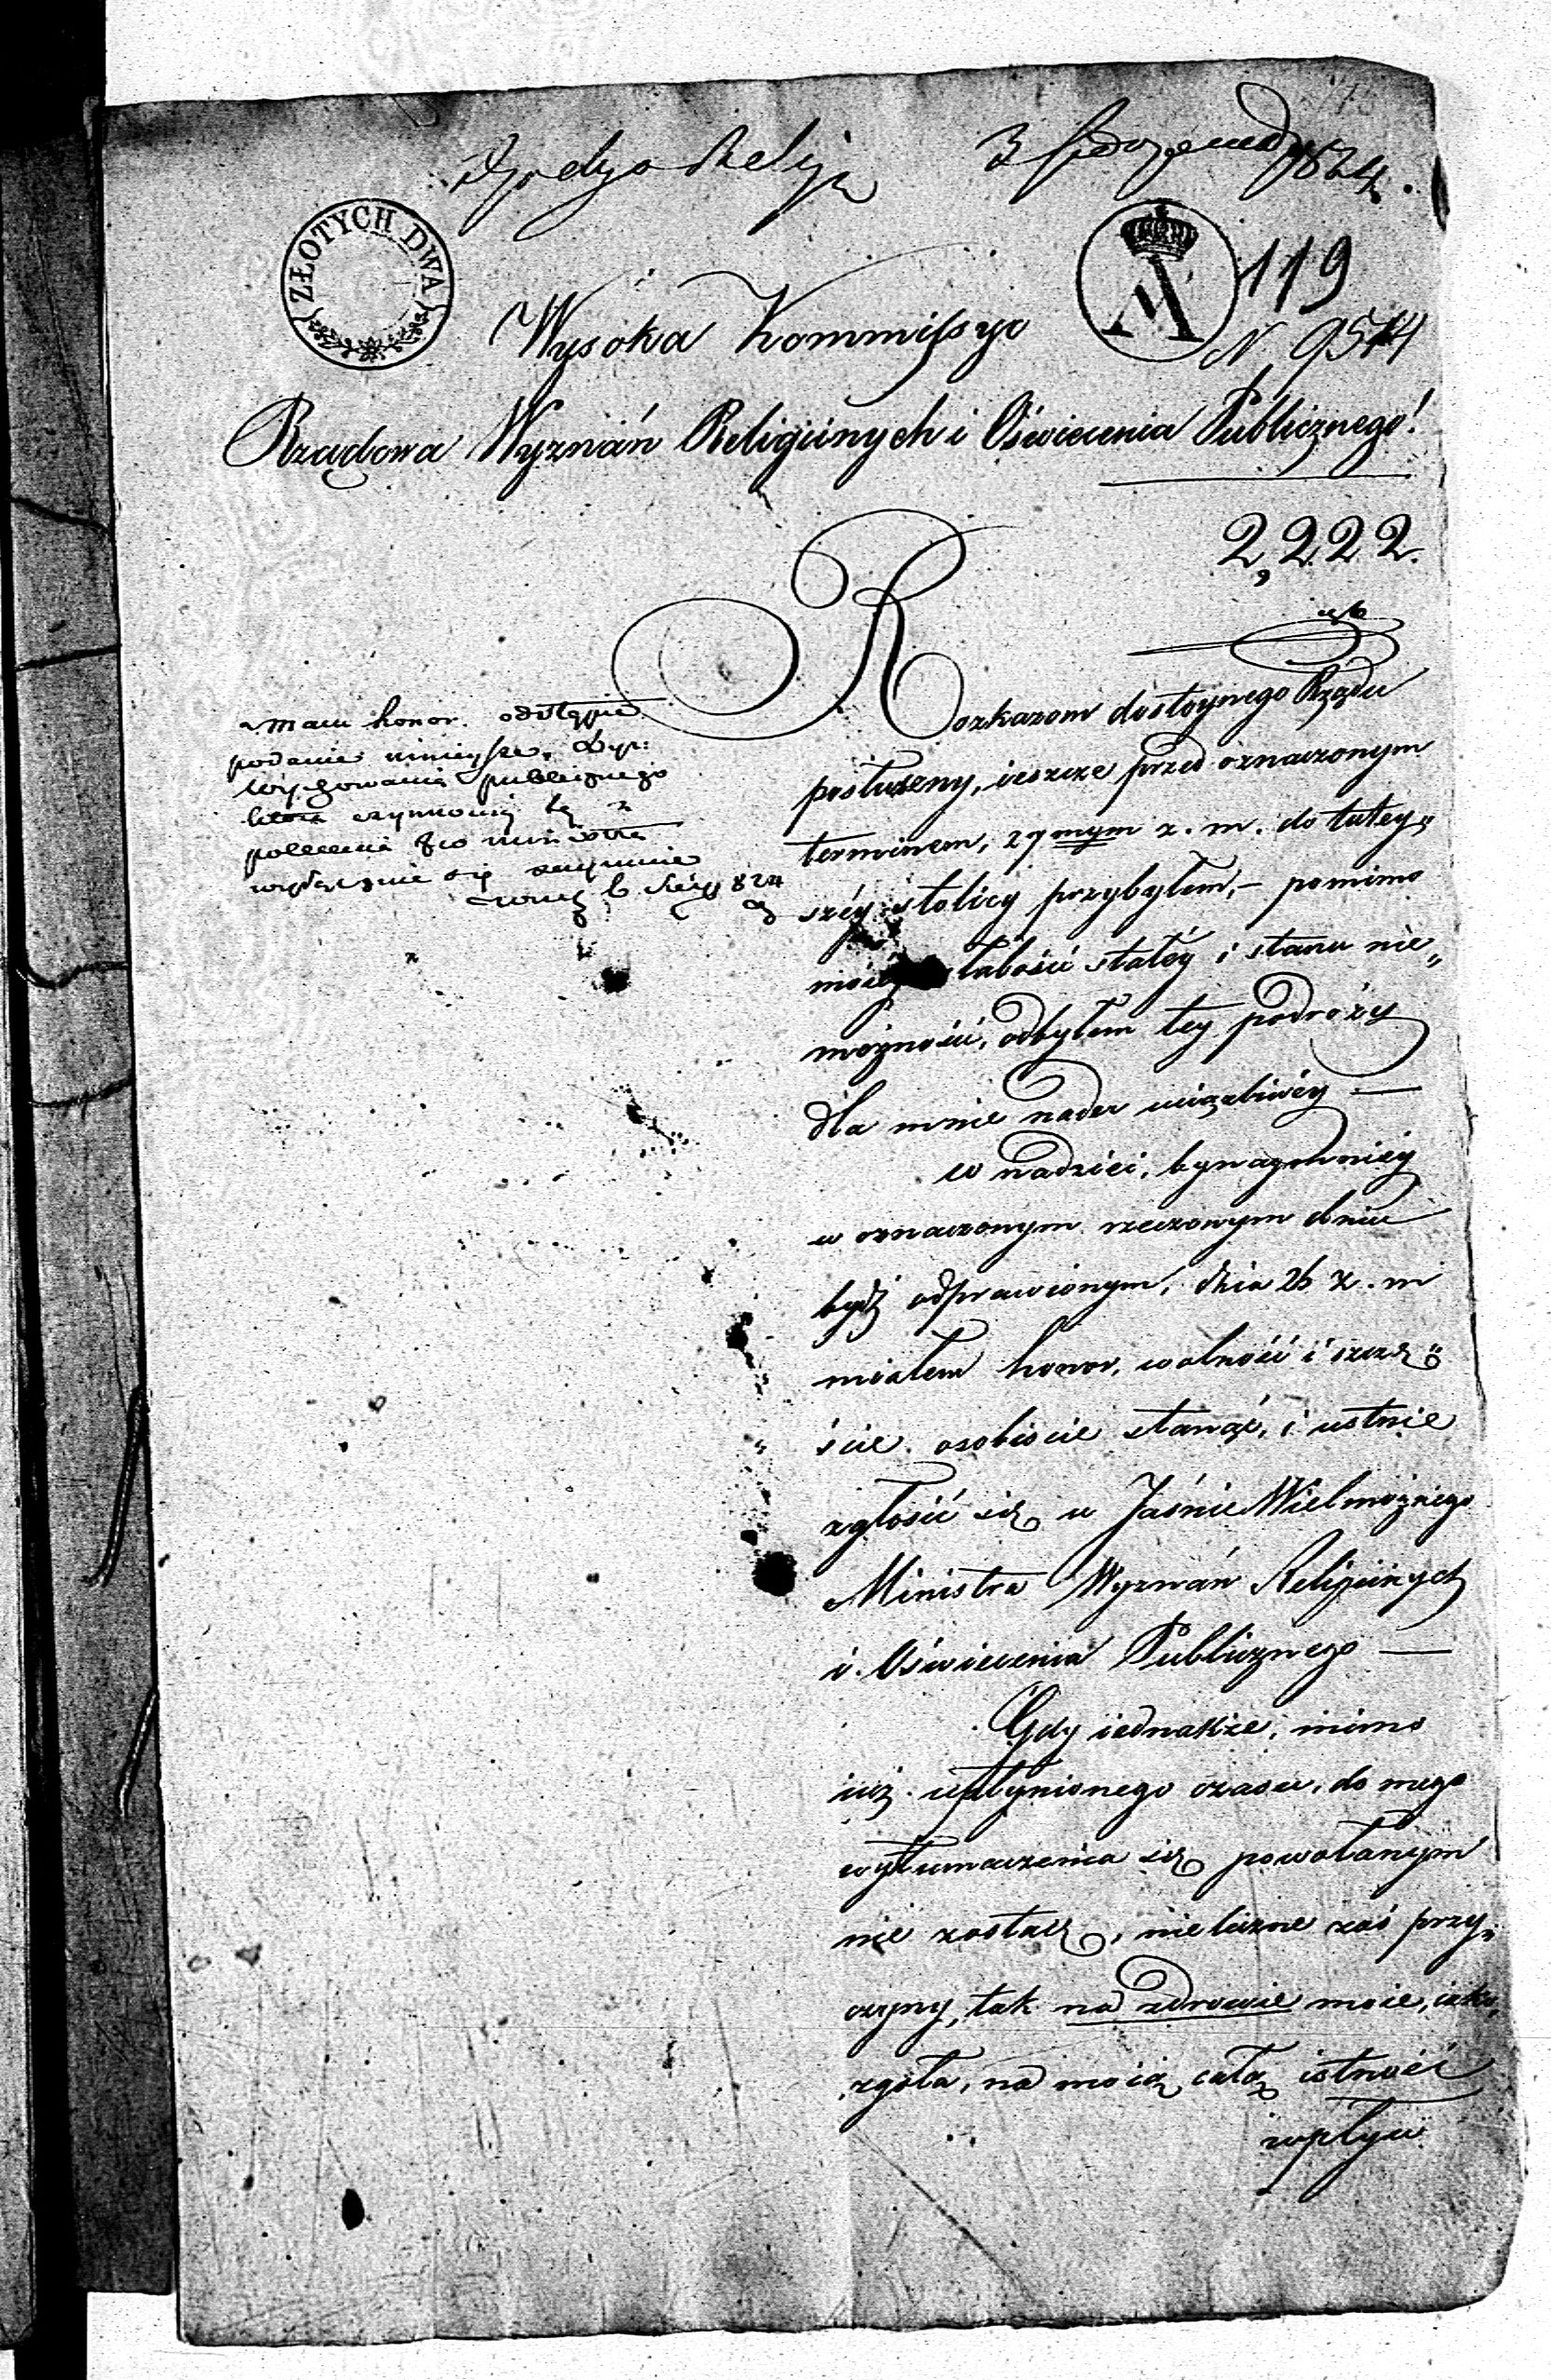 3 1824.
ZŁOTYCH DWA
A
119
N. 9514
Wysoka Kommissyo
Rządowa Wyznań Religiinych i Oświecenia Publicznego!
2,222.
Mam honor odstąpić
podanie ninieysze Dyr:
wychowania publicznego
która czynnością tą z
polecenia JW Ministra
wyłącznie się zaymuie
6 824
Rozkazom dostoynego Rządu
posłuszny, ieszcze przed oznaczonym
terminem, 27mym z. m. do tutey„
széy stolicy przybyłem, – pomimo
moiéy słabości stałéy i stanu nie„
możności, odbyłem tey podróży
dla mnie nader uciążliwéy —
w nadziei, bynaymniéy
w oznaczonym rzeczonym dniu
bydź odprawionym, dnia 26 z. m
miałem honor, wolność i szczę„
ście osobiście stanąć, i ustnie
zgłosić się u Jaśnie Wielmożnego
Ministra Wyznań Religiinych
i Oświecenia Publicznego —
Gdy iednakże, mimo
iuż upłynionego czasu, do mego
wytłumaczenia się powołanym
nie zostaię, nieliczne zaś przy„
czyny, tak na zdrowie moie, iako
zgoła, na moią całą istność
wpływ